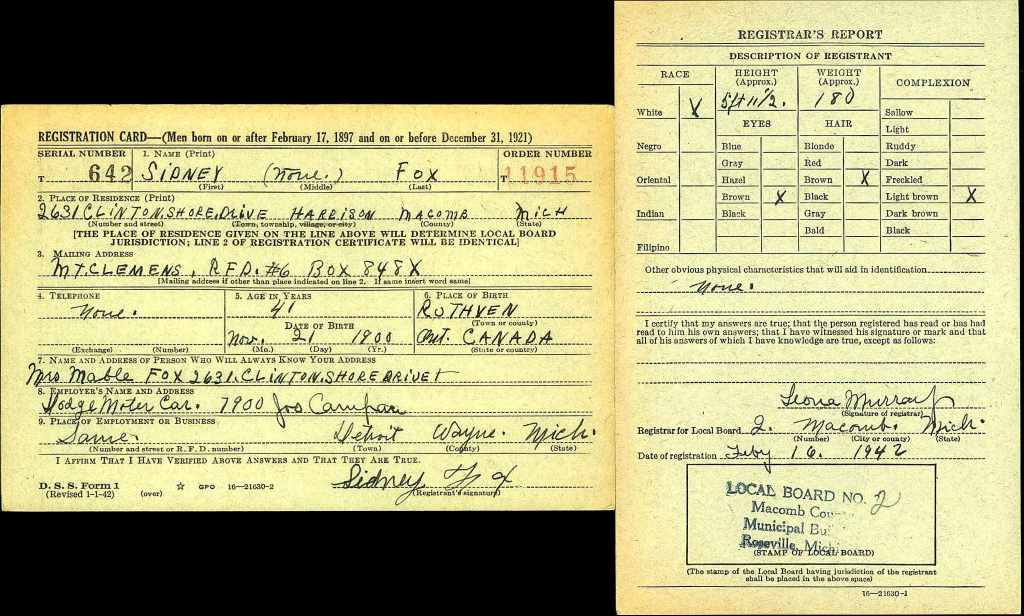 REGISTRATION CARD—(Men born on or after February 17, 1897 and on or before December 31, 1921)
SERIAL NUMBER 1. NAME (Print) ORDER NUMBER
T 642 SIDNEY (None.) FOX T 11915
(First) (Middle) (Last)
2. PLACE OF RESIDENCE (Print)
2631 CLINTON.SHORE.DRIVE HARRISON MACOMB MICH
(Number and street) (Town, township, village, or city) (County) (State)
[THE PLACE OF RESIDENCE GIVEN ON THE LINE ABOVE WILL DETERMINE LOCAL BOARD
JURISDICTION; LINE 2 OF REGISTRATION CERTIFICATE WILL BE IDENTICAL]
3. MAILING ADDRESS
MT.CLEMENS, R.F.D. #6 BOX 848X
[Mailing address if other than place indicated on line 2. If same insert word same]
4. TELEPHONE 5. AGE IN YEARS 6. PLACE OF BIRTH
None. 41 RUTHVEN
(Town or county)
DATE OF BIRTH
Nov. 21 1900 Ont. CANADA
(Exchange) (Number) (Mo.) (Day) (Yr.) (State or country)
7. NAME AND ADDRESS OF PERSON WHO WILL ALWAYS KNOW YOUR ADDRESS
Mrs MABLE FOX 2631.CLINTON.SHORE
8. EMPLOYER'S NAME AND ADDRESS
Dodge Moter Car. 7900 Jos Campau
9. PLACE OF EMPLOYMENT OR BUSINESS
Same. Detroit Wayne. Mich.
(Number and street or R. F. D. number) (Town) (County) (State)
I AFFIRM THAT I HAVE VERIFIED ABOVE ANSWERS AND THAT THEY ARE TRUE.
Sidney Fox
D. S. S. Form 1
(Revised 1-1-42) (over) ☆ GPO 16—21630-2 (Registrant's signature)
REGISTRAR'S REPORT
DESCRIPTION OF REGISTRANT
RACE HEIGHT (Approx.) WEIGHT (Approx.) COMPLEXION
5ft 11½. 180
White X Sallow
EYES HAIR Light
Negro Blue Blonde Ruddy
Gray Red Dark
Oriental Hazel Brown X Freckled
Brown X Black Light brown X
Indian Black Gray Dark brown
Bald Black
Filipino
Other obvious physical characteristics that will aid in identification
None.
I certify that my answers are true; that the person registered has read or has had
read to him his own answers; that I have witnessed his signature or mark and that
all of his answers of which I have knowledge are true, except as follows:
Leona Murray
(Signature of registrar)
Registrar for Local Board 2. Macomb. Mich.
(Number) (City or county) (State)
Date of registration Feby 16. 1942
LOCAL BOARD NO. 2
Macomb
Municipal
Roseville, Mich
(STAMP OF LOCAL BOARD)
(The stamp of the Local Board having jurisdiction of the registrant
shall be placed in the above space)
16—21630-1